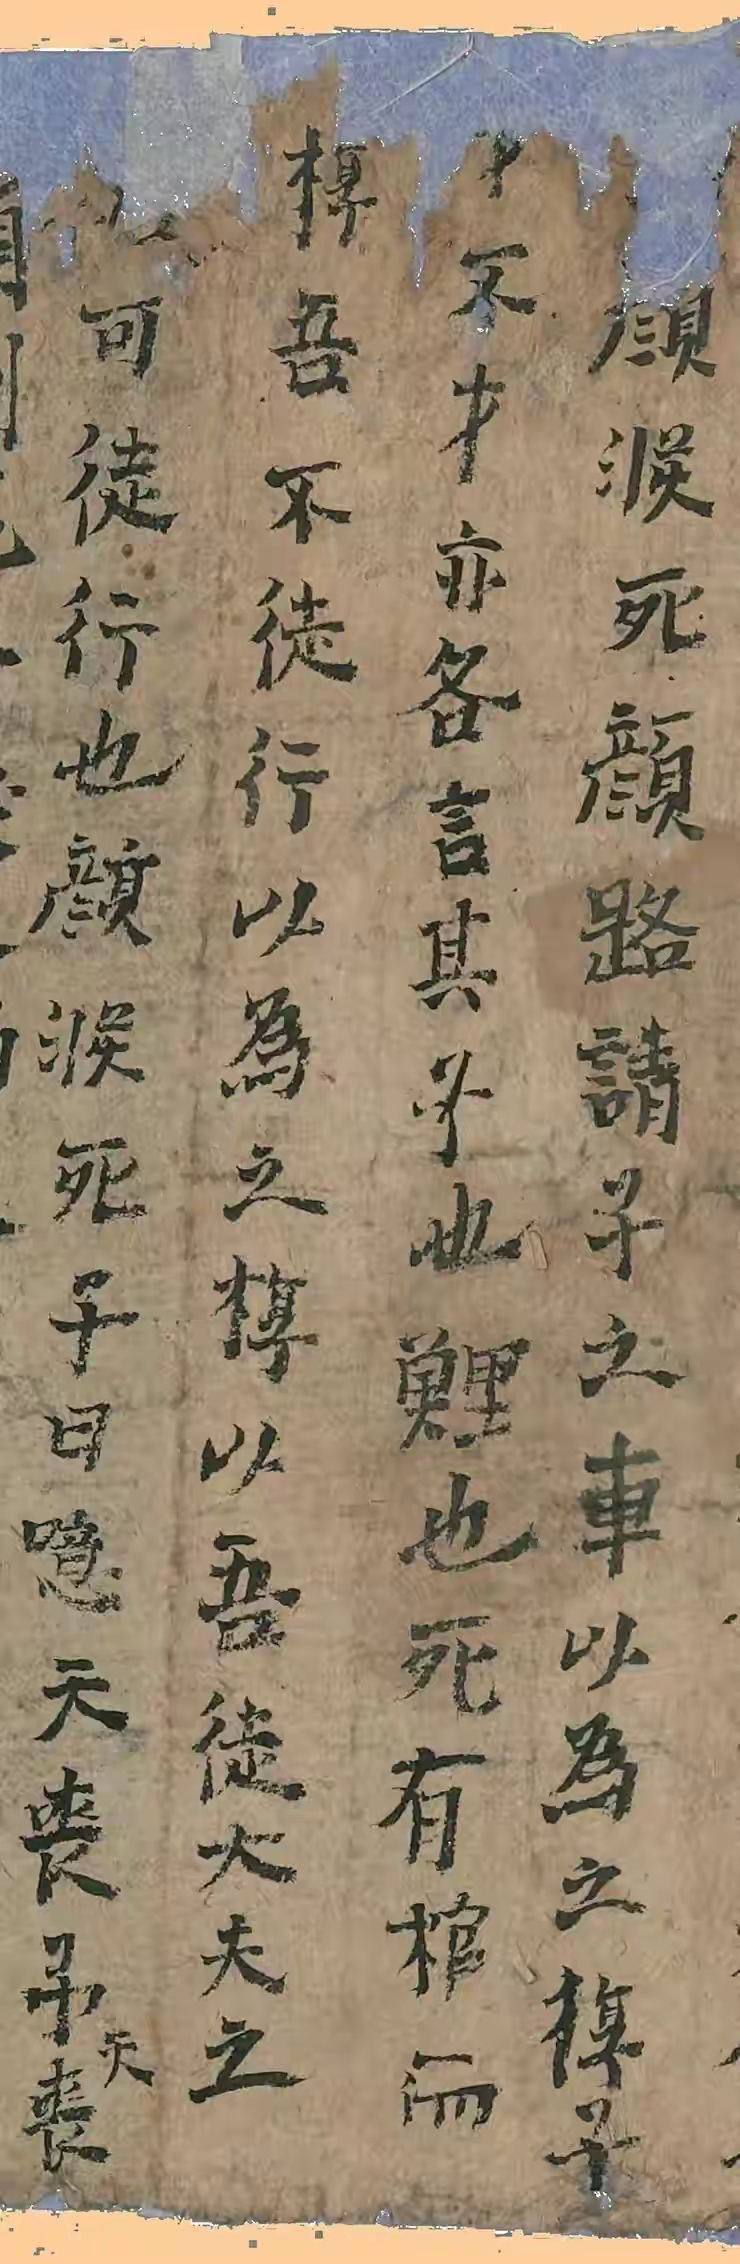 顔淵死顔路請子之車以為之椁子
才不才亦各言其子也鯉也死有棺而
椁吾不徒行以為之椁以吾徒大夫之
可徒行也顔淵死子曰噫天喪予天喪